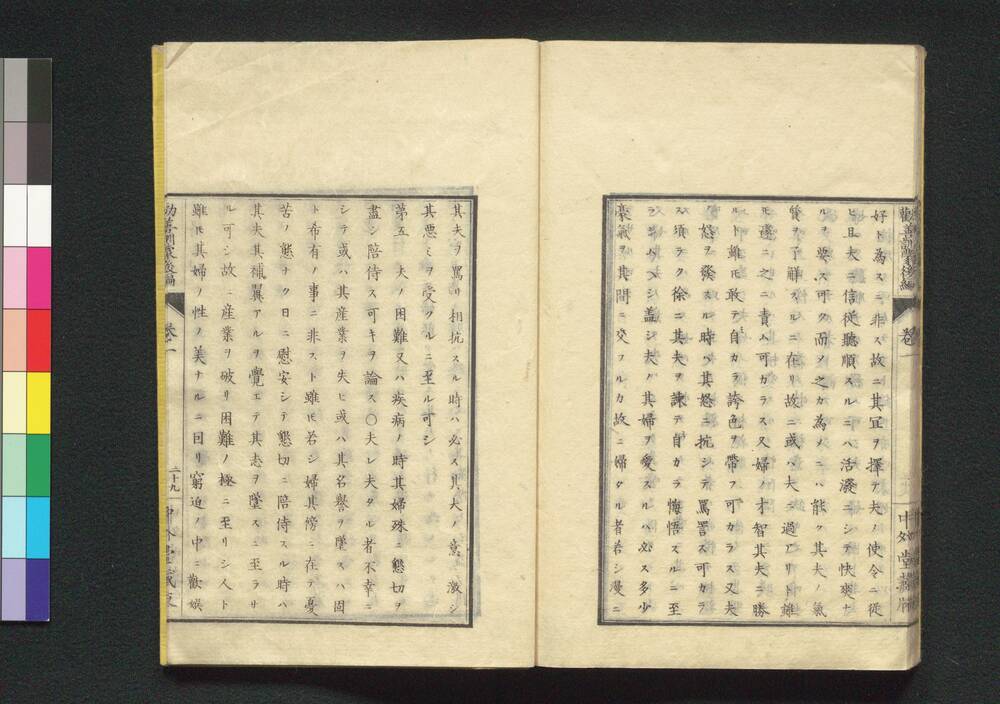 勸善訓蒙後編 卷一 中外堂藏版
好ト為スニ非ス故ニ其冝ヲ擇テ夫ノ使令ニ從
ヒ且夫ニ信從聽順スルニハ活潑ニシテ快爽ナ
ルヲ要ス可ク而メ之カ為メニハ能ク其夫ノ氣
質ヲ了解スルニ在リ故ニ或ハ夫ニ過アリト雖
モ遽ニ之ニ責ム可カラス又婦ノ才智其夫ニ勝
ルト雖モ敢テ自カラ誇色ヲ帶フ可カラス又夫
ノ怒ヲ發スル時ハ其怒ニ抗シテ罵詈ス可カラ
ス須ラク徐ニ其夫ヲ諌テ自カラ悔悟スルニ至
ラシムヘシ盖シ夫ノ其婦ヲ愛スルハ必ス多少
豪氣ヲ其間ニ交フルカ故ニ婦タル者若シ漫ニ
其夫ヲ罵リ相抗スル時ハ必ス其夫ノ意ヲ激シ
其悪ミヲ受クルニ至ル可シ
第五 夫ノ困難又ハ疾病ノ時其婦殊ニ懇切ヲ
盡シ陪待ス可キヲ論ス〇夫レ夫タル者不幸ニ
シテ或ハ其産業ヲ失ヒ或ハ其名譽ヲ墜スハ固
ト希有ノ事ニ非スト雖モ若シ婦其傍ニ在テ憂
苦ノ態ナク日ニ慰安シテ懇切ニ陪侍スル時ハ
其夫其補翼アルヲ覺エテ其志ヲ墜スニ至ラサ
ル可シ故ニ産業ヲ破リ困難ノ極ニ至リシ人ト
雖モ其婦ノ性ノ美ナルニ因リ窮迫ノ中ニ歡娯
勸善訓蒙後編 卷一 二十九 中外堂藏版